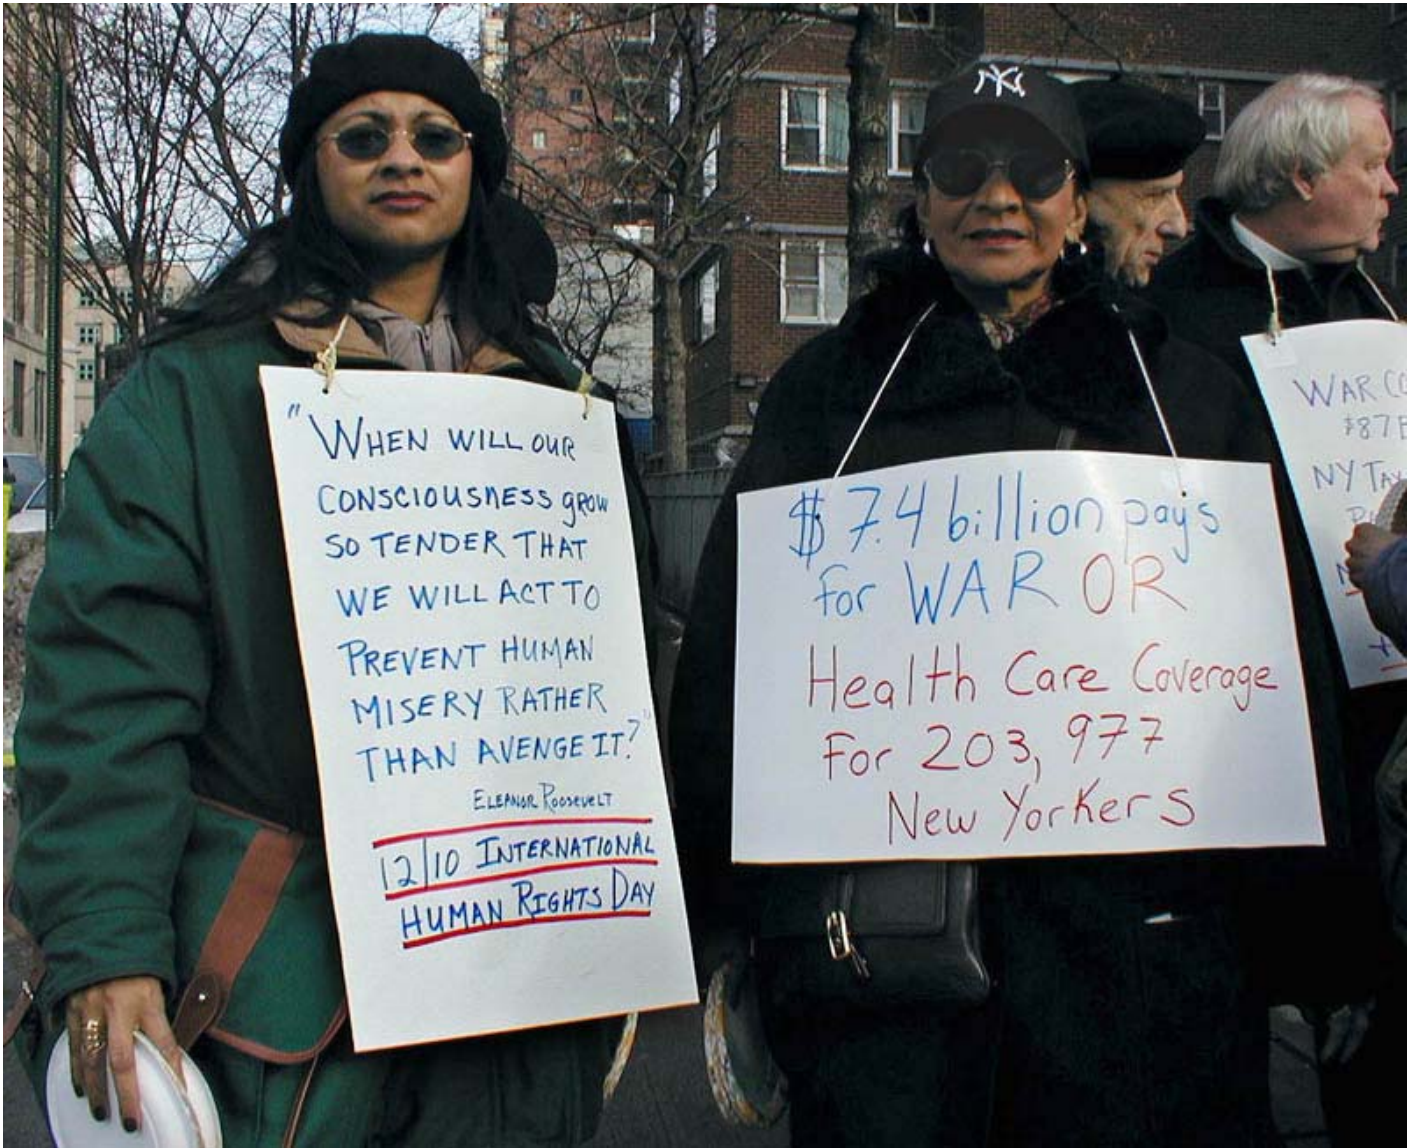 "WHEN WILL OUR
CONSCIOUSNESS GROW
SO TENDER THAT
WE WILL ACT TO
PREVENT HUMAN
MISERY RATHER
THAN AVENGE IT?"
ELEANOR ROOSEVELT
12/10 INTERNATIONAL
HUMAN RIGHTS DAY
NY
$7.4 billion pays
for WAR OR
Health Care Coverage
For 203,977
New Yorkers
WAR
$87
NY